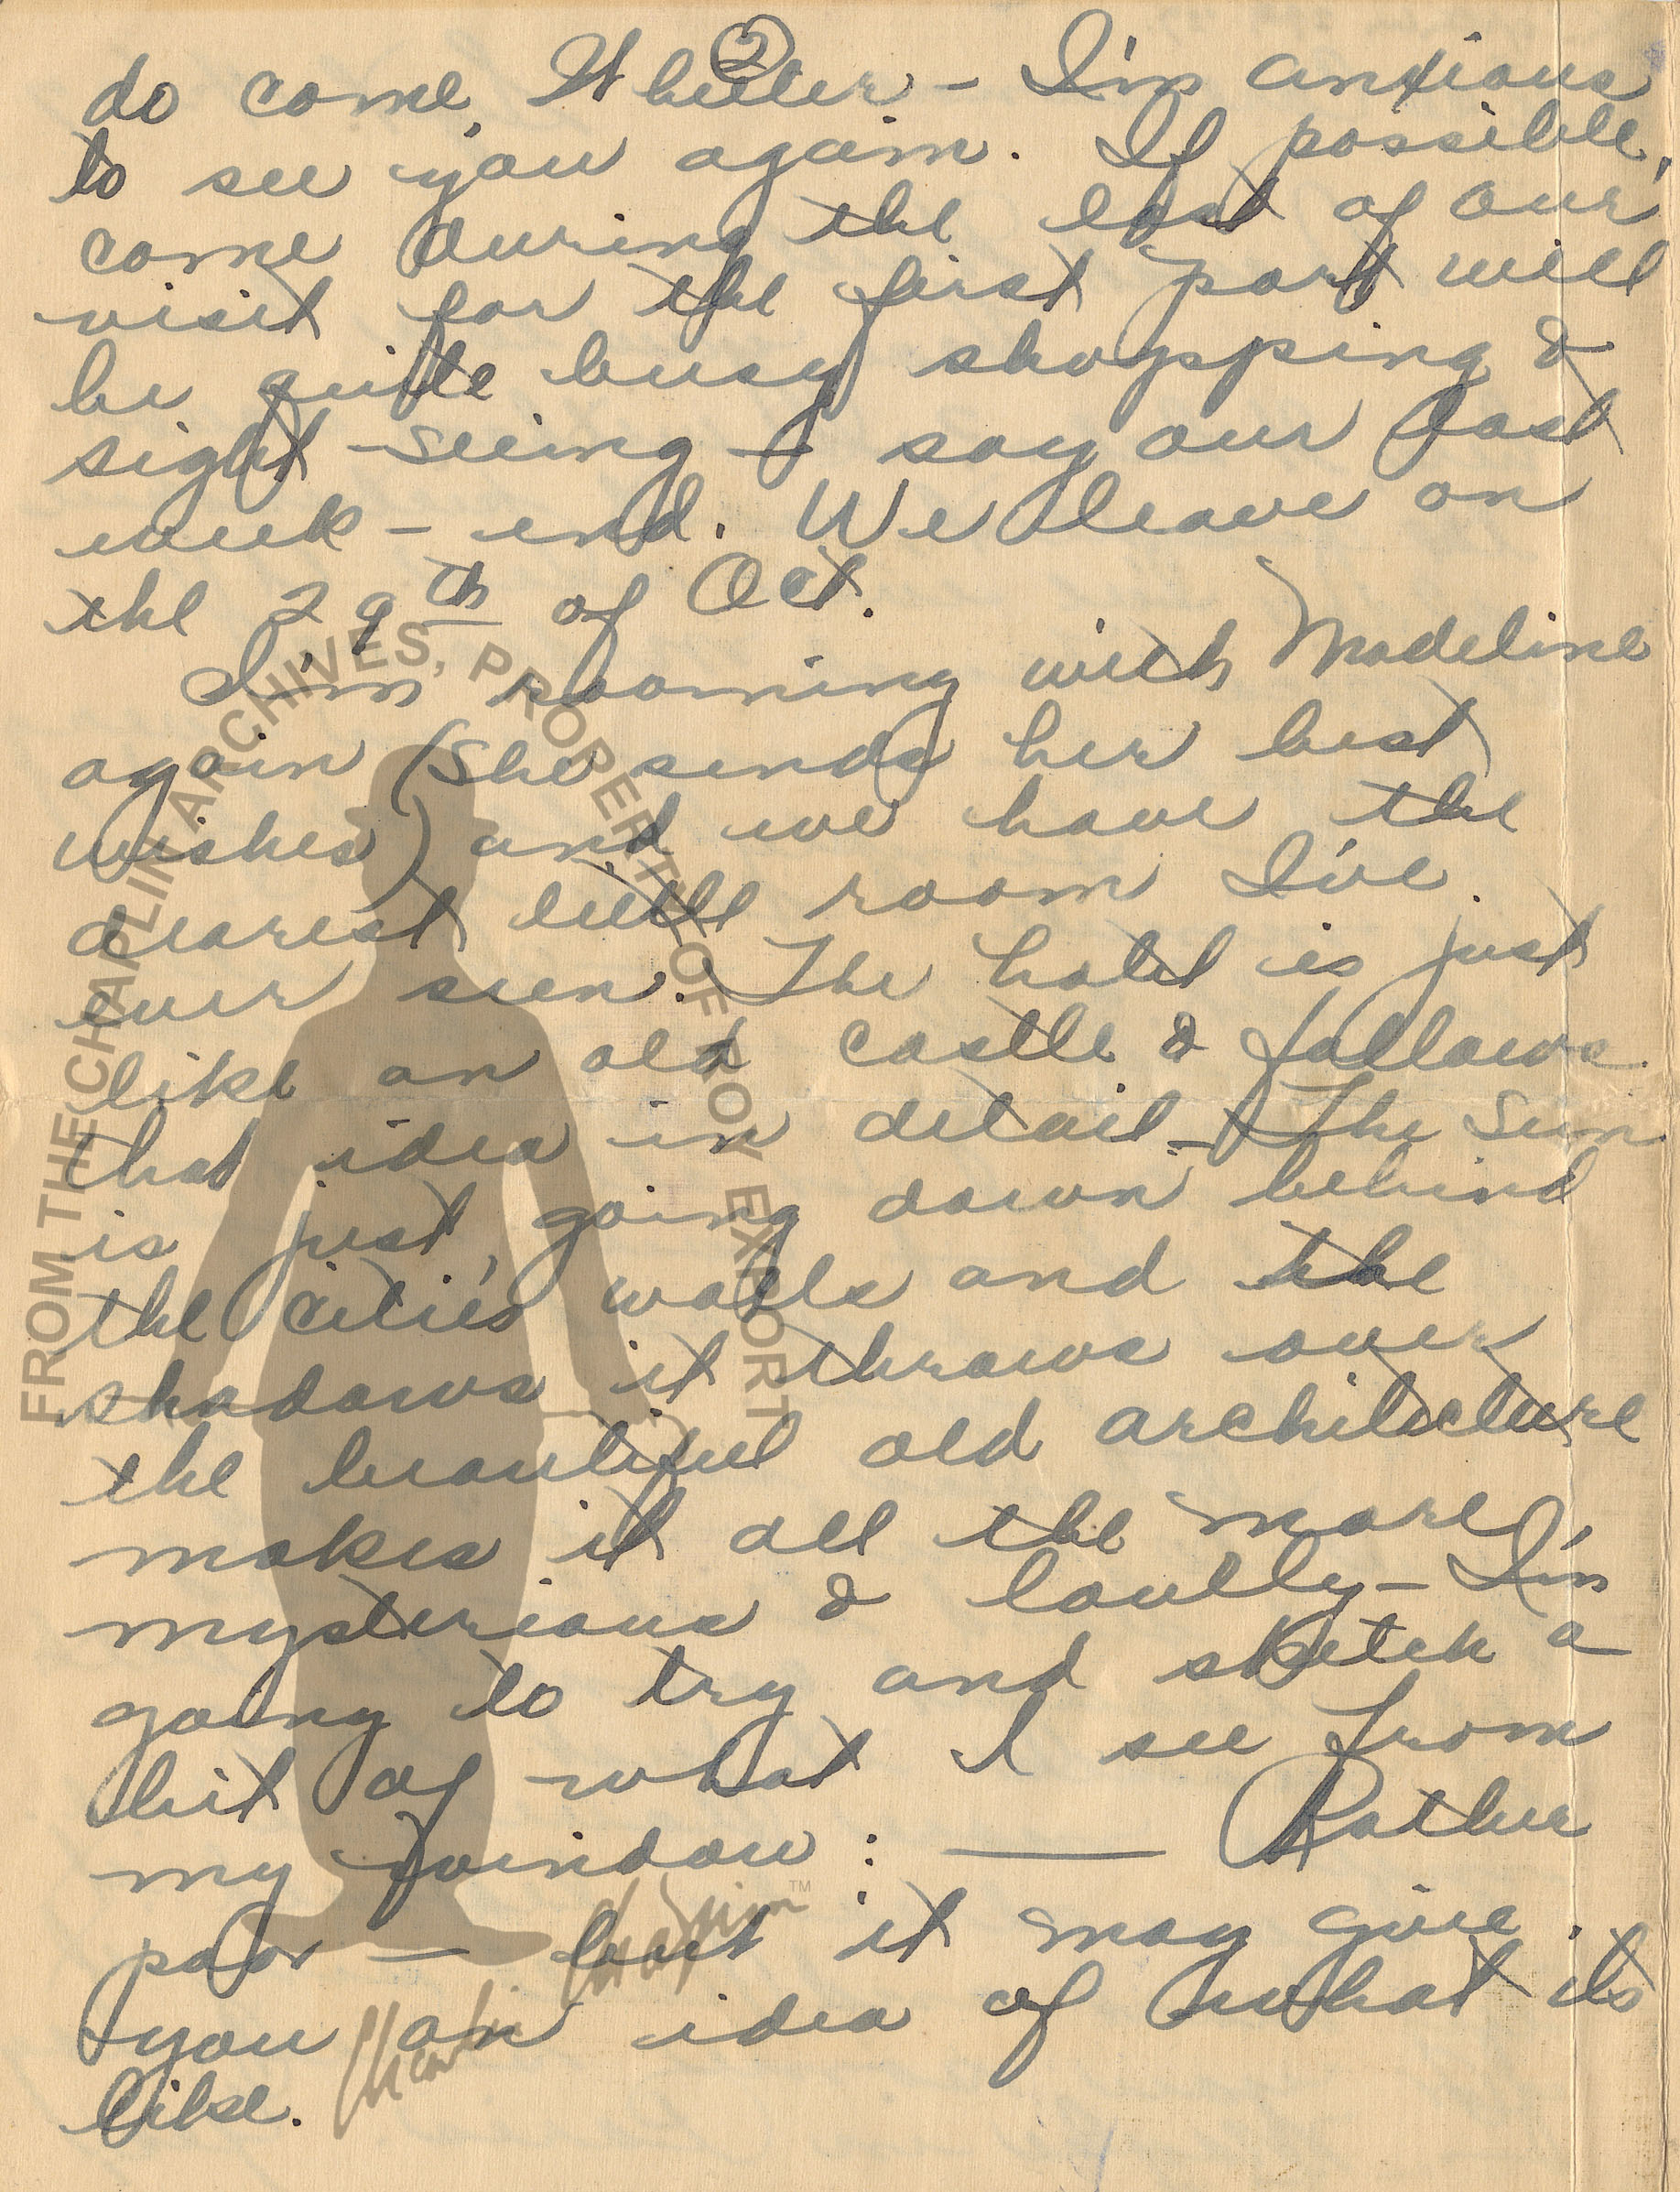 ②
do come, Wheeler - I'm anxious
to see you again. If possible,
come during the last of our
visit for the first part will
be quite busy shopping &
sight-seeing - I say our last
week-end. We leave on
the 29th of Oct.
I'm rooming with Madeline
again (she sends her best
wishes) and we have the
dearest little room I've
ever seen. The hotel is just
like an old castle & follows
that idea in detail - The sun
is just going down behind
the citie's walls and the
shadows it throws over
the beautiful old architecture
makes it all the more
mysterious & lovely - I'm
going to try and sketch a
bit of what I see from
my window : — Rather
poor — but it may give
you an idea of what its
like.
FROM THE CHAPLIN ARCHIVES, PROPERTY OF ROY EXPORT
Charlie Chaplin™